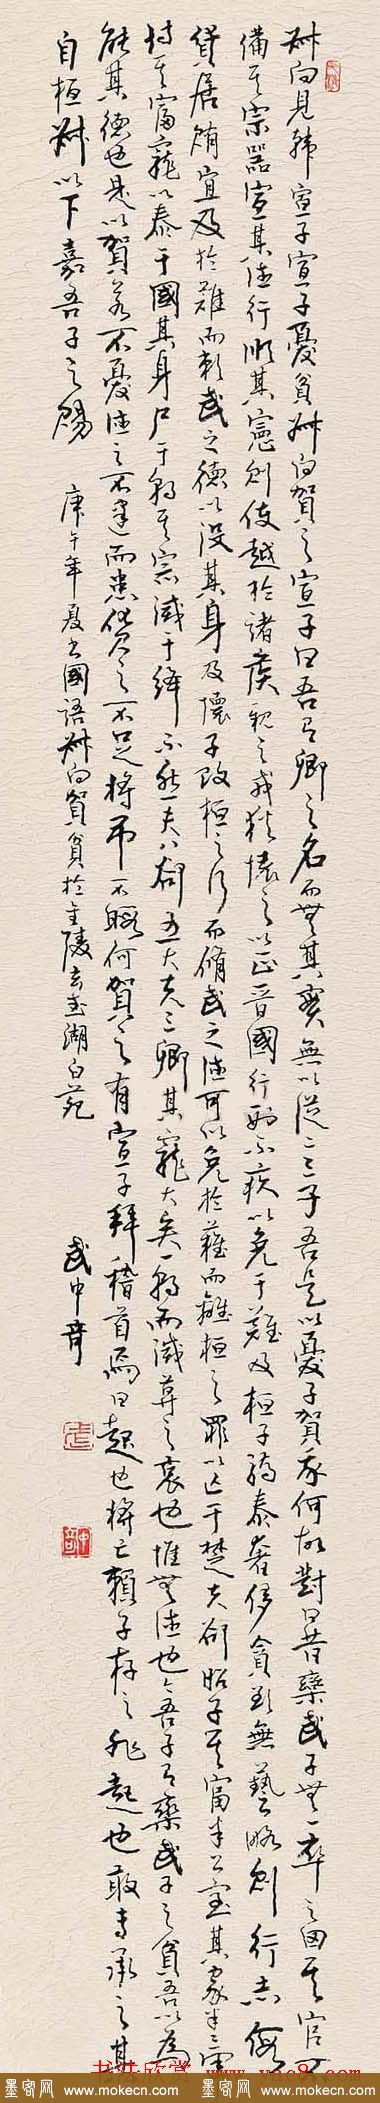 叔向見韓宣子宣子憂貧叔向賀之宣子曰吾有卿之名而無其實無以從二三子吾是以憂子賀我何故對曰昔欒武子無一卒之田其官不
備其宗器宣其德行順其憲則使越於諸侯諸侯親之戎狄懷之以正晉國行刑不疚以免于難及桓子驕泰奢侈貪欲無藝略則行志假
貸居賄宜及於難而賴武之德以沒其身及懷子改桓之行而脩武之德可以免於難而離桓之罪以亡于楚夫郤昭子其富半公室其家半三軍
恃其富寵以泰于國其身尸于朝其宗滅于絳不然夫八郤五大夫三卿其寵大矣一朝而滅莫之哀也惟無德也今吾子有欒武子之貧吾以為
能其德也是以賀若不憂德之不建而患貨之不足將弔不暇何賀之有宣子拜稽首焉曰起也將亡賴子存之非起也敢專承之其
自桓叔以下嘉吾子之賜
庚午年夏書國語叔向賀貧於金陵玄武湖白苑
武中奇
書法欣賞 www.yac8.com
墨客网 www.mokecn.com 墨客网 www.mokecn.com